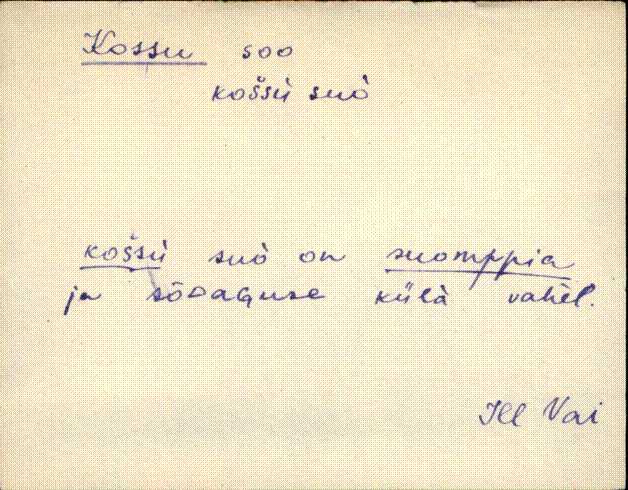 Kossu soo
košsù suò
košsù suò on suomppia
ja sõDaGuse külà vahèl.
Ill Vai